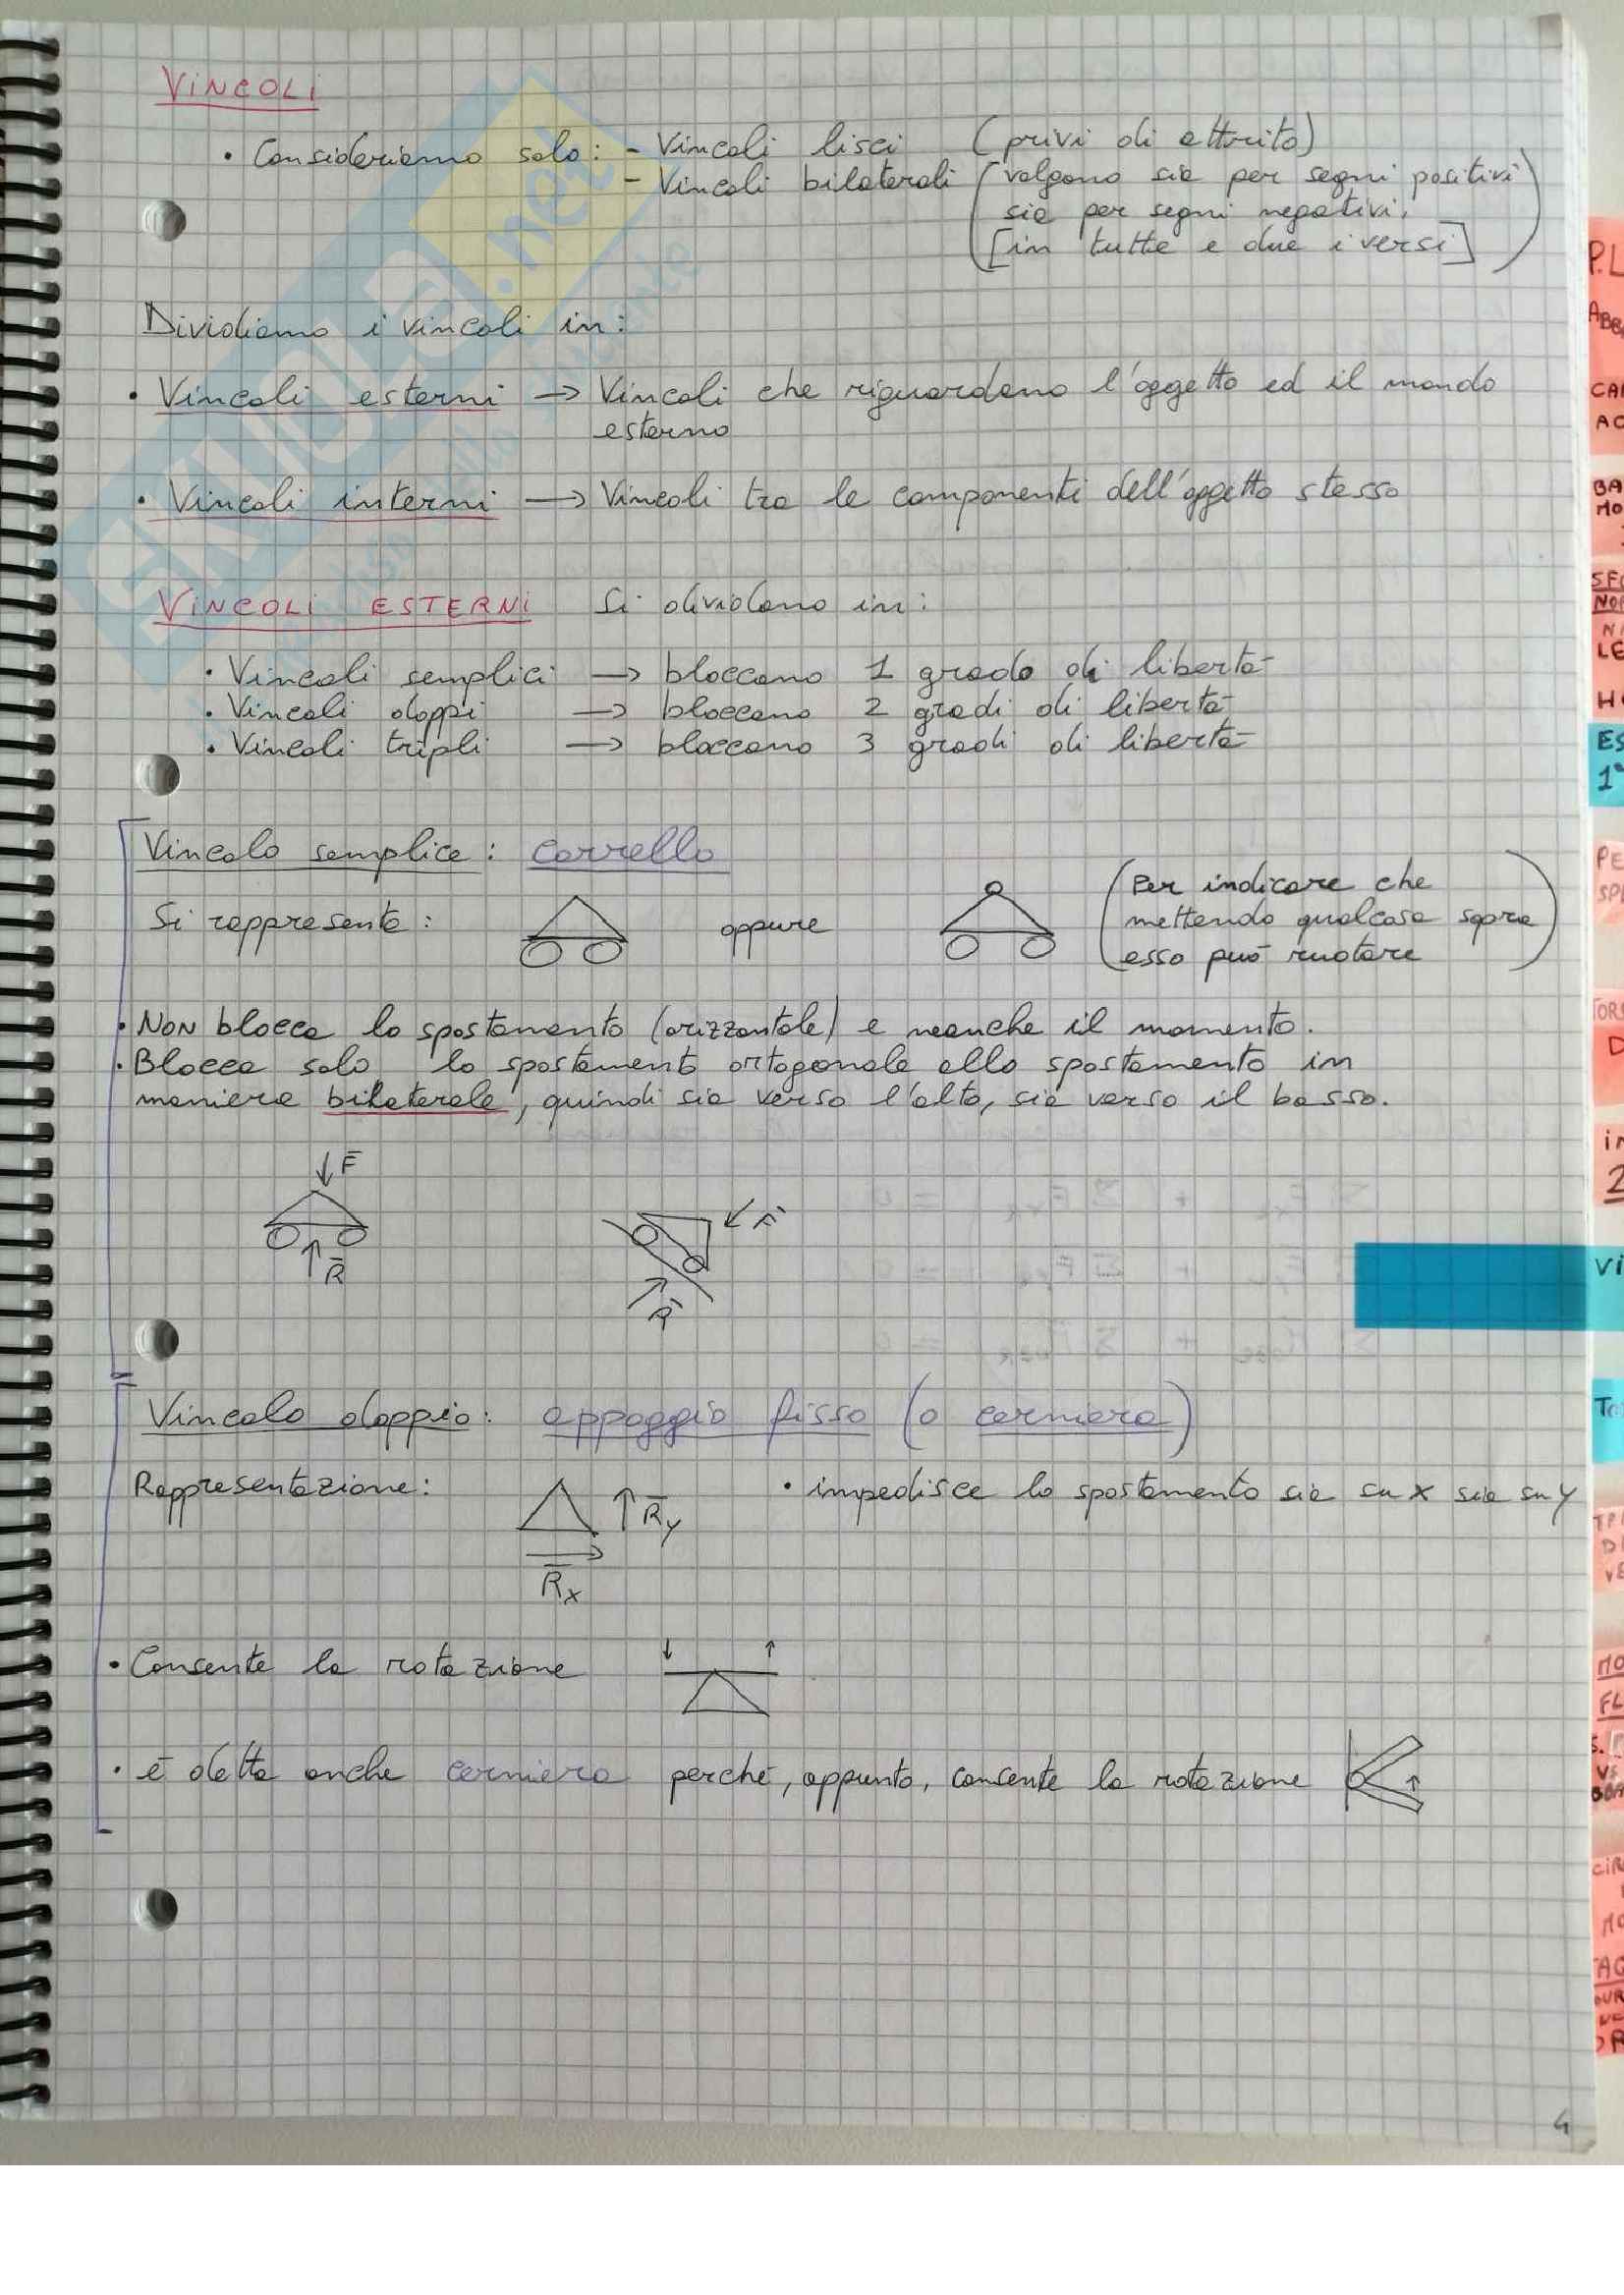 VINCOLI
• Consideriamo solo: - Vincoli lisci (privi di attrito)
- Vincoli bilaterali (valgono sia per segni positivi
sia per segni negativi.
[in tutte e due i versi])
Dividiamo i vincoli in:
• Vincoli esterni → Vincoli che riguardano l'oggetto ed il mondo
esterno
• Vincoli interni → Vincoli tra le componenti dell'oggetto stesso
VINCOLI ESTERNI Si dividono in:
• Vincoli semplici → bloccano 1 grado di libertà
• Vincoli doppi → bloccano 2 gradi di libertà
• Vincoli tripli → bloccano 3 gradi di libertà
Vincolo semplice: carrello
Si rappresenta: oppure (Per indicare che
mettendo qualcosa sopra
esso può ruotare)
• NON blocca lo spostamento (orizzontale) e neanche il momento.
• Blocca solo lo spostamento ortogonale allo spostamento in
maniera bilaterale, quindi sia verso l'alto, sia verso il basso.
F
R
F
R
Vincolo doppio: appoggio fisso (o cerniera)
Rappresentazione: Ry • impedisce lo spostamento sia su x sia su y
Rx
• Consente la rotazione
• è detta anche cerniera perché, appunto, consente la rotazione
4
SKUOLA.net
P.L
CAR
AC
BA
MO
LE
ES
1°
PE
SP
D
2
Vi
MO
FL